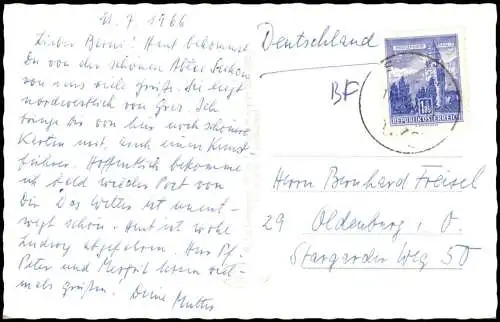 21.7.1966
Lieber Berni! Heut bekommst
Du von der schönen Abtei Seckau
von uns viele Grüße. Sie liegt
nordwestlich von Graz. Ich
bringe Dir von hier noch schöne
Karten mit, auch einen Kunst-
führer. Hoffentlich bekomme
ich bald wieder Post von
Dir. Das Wetter ist unent-
wegt schön. Heut ist
Ludwig abgefahren. Herr Pf.
Peter und lassen viel-
mals grüßen. Deine Mutter
Deutschland
BF
REPUBLIK ÖSTERREICH
Herrn Bernhard Freisel
29 Oldenburg i. O.
Stargarder Weg 50